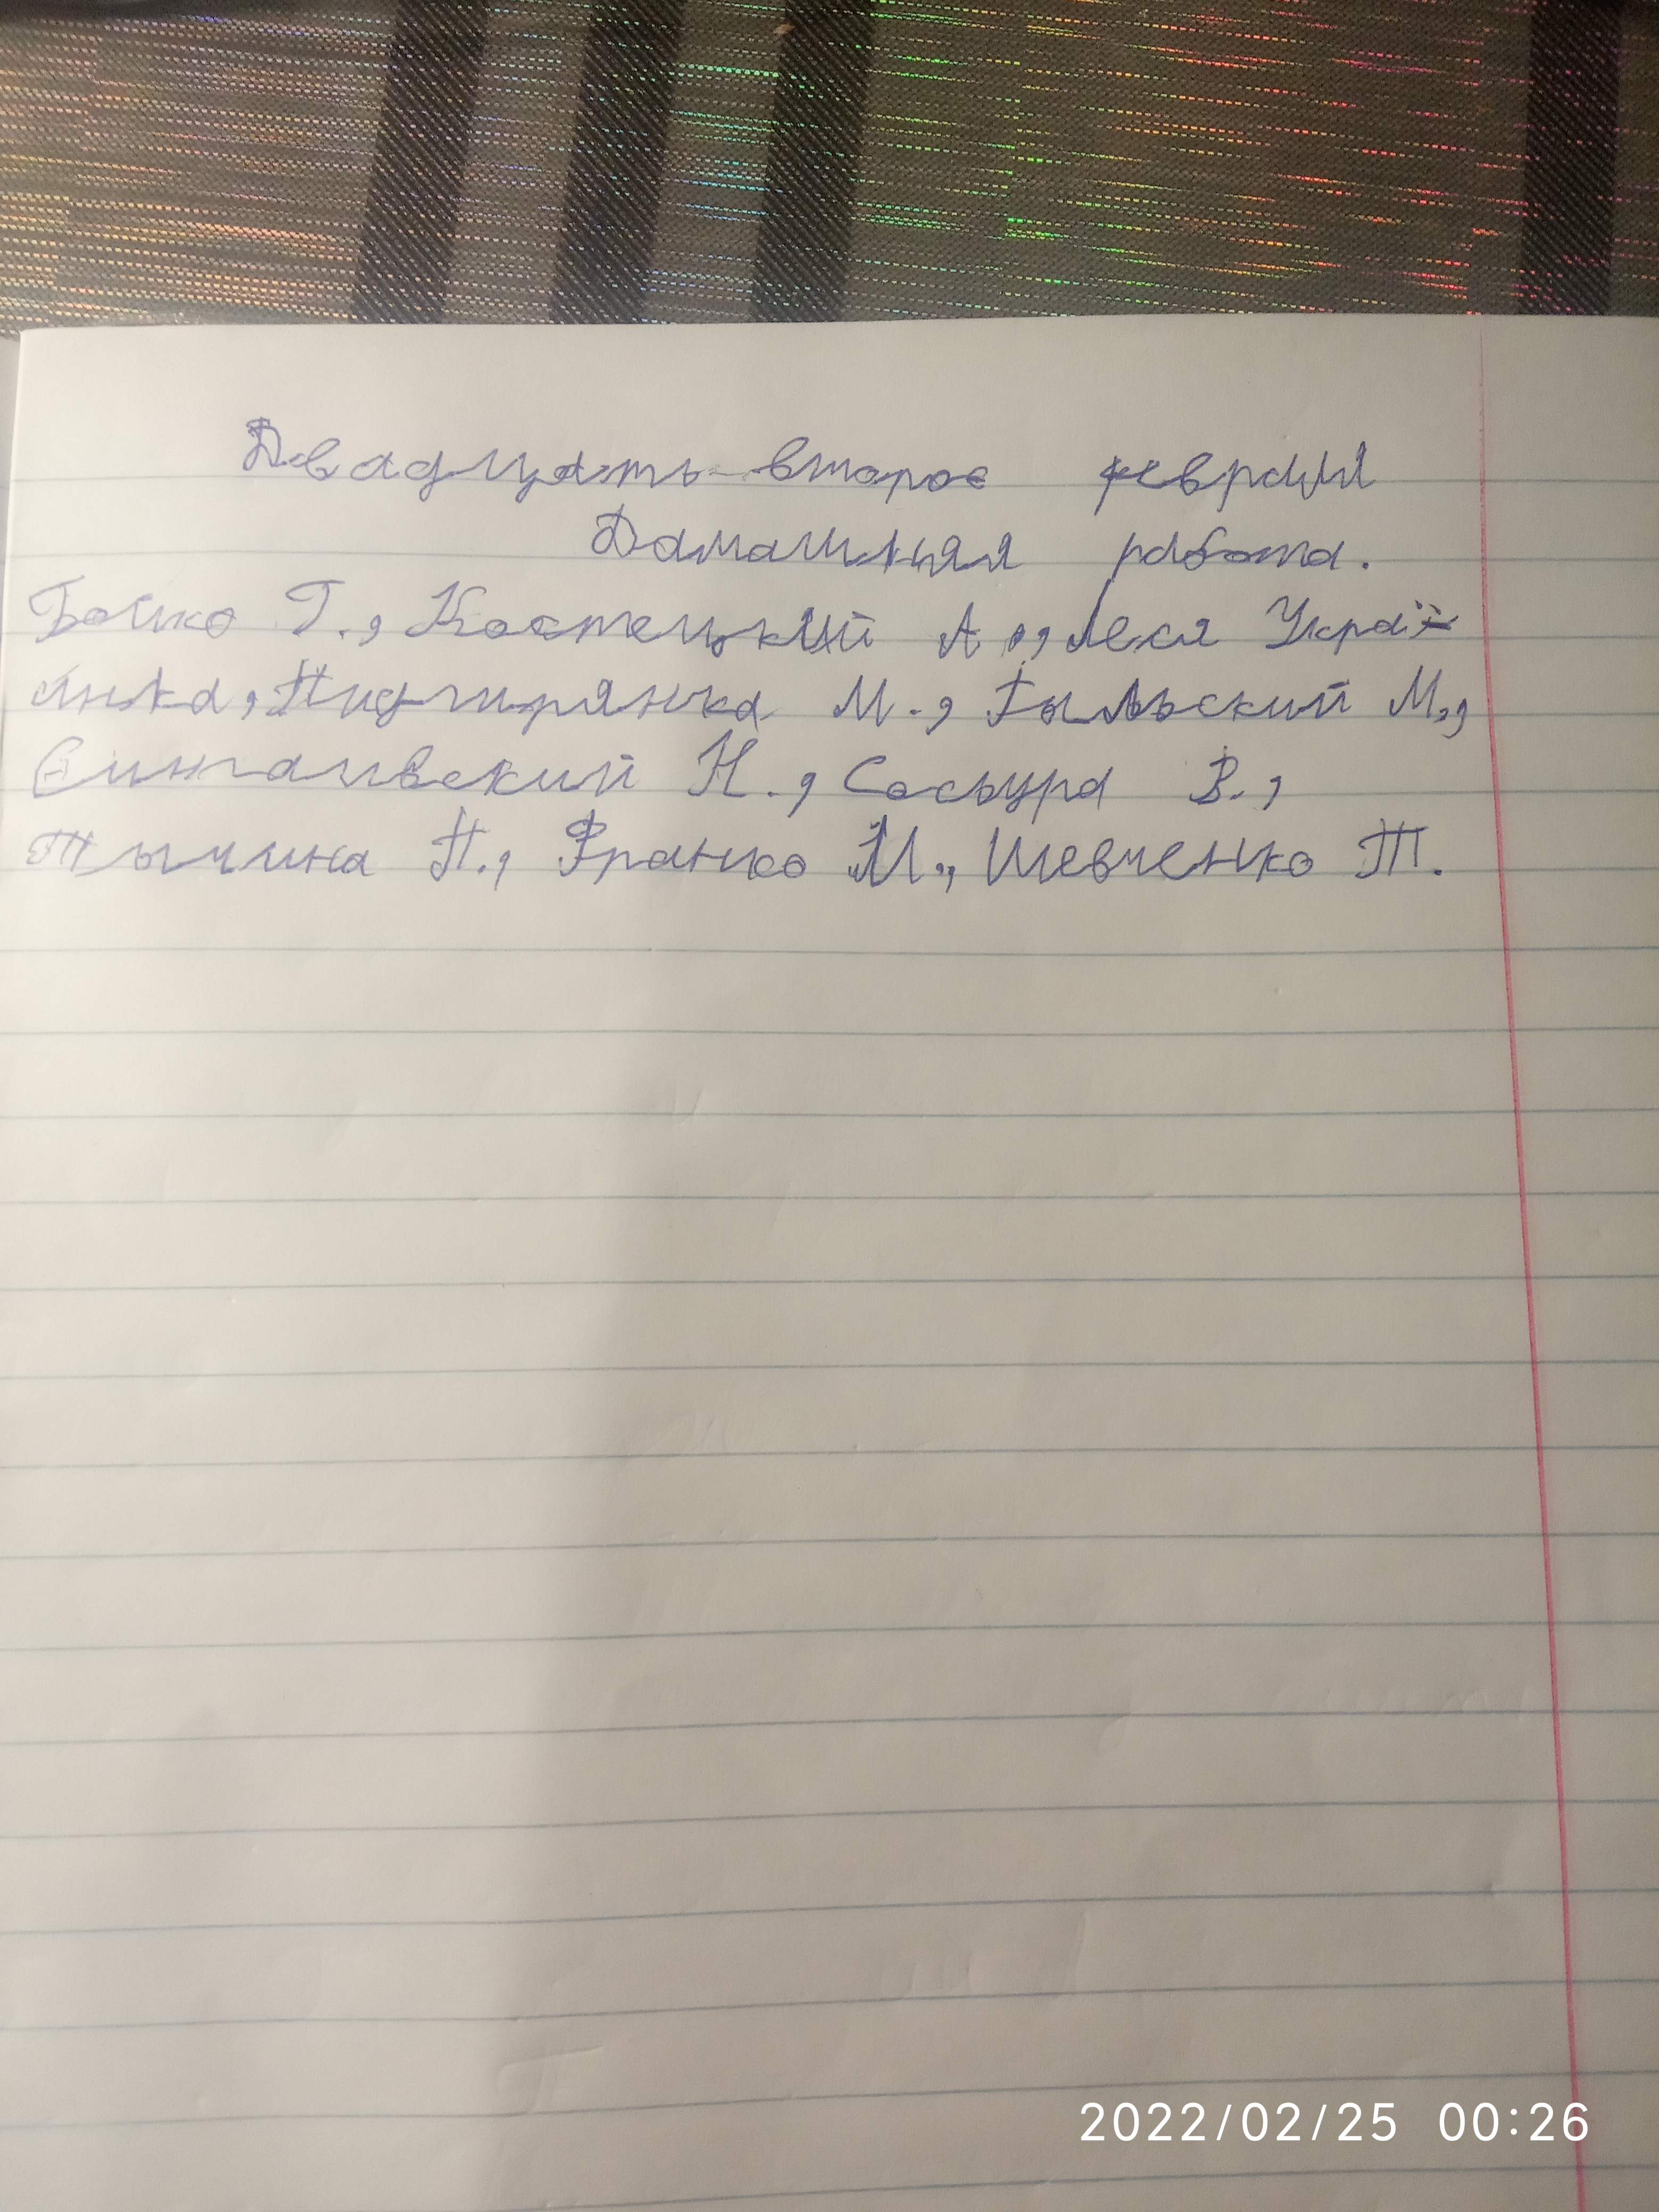 Двадцать-второе февраля
Домашняя работа.
Бойко Г., Костецький А., Леся Украї
инка, Пидгирянка М., Рыльский М.,
Сингаивский Н., Сосьура В.,
Тычина П., Франко И., Шевченко Т.
2022/02/25 00:26